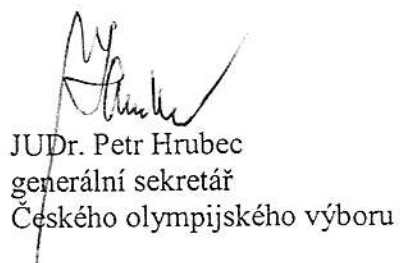 JUDr. Petr Hrubec
generální sekretář
Českého olympijského výboru